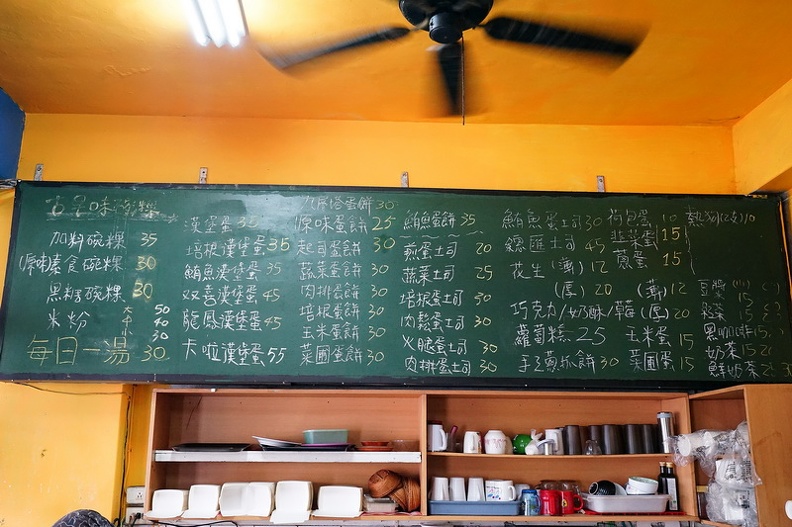 古早味碗粿
加料碗粿 35
素食碗粿 30
黑糖碗粿 30
米粉 大 50
中 40
小 30
每日一湯 30
漢堡蛋 35
培根漢堡蛋 35
鮪魚漢堡蛋 35
双喜漢堡蛋 45
龍鳳漢堡蛋 45
卡啦漢堡蛋 55
九层塔蛋餅 30
原味蛋餅 25
起司蛋餅 30
蔬菜蛋餅 30
肉排蛋餅 30
培根蛋餅 30
玉米蛋餅 30
菜圃蛋餅 30
鮪魚蛋餅 35
煎蛋土司 20
蔬菜土司 25
培根蛋土司 30
肉鬆蛋土司 30
火腿蛋土司 30
肉排蛋土司 30
鮪魚蛋土司 30
總匯土司 45
花生 (薄) 12
(厚) 20
巧克力/奶酥/草莓
(薄) 12
(厚) 20
蘿蔔糕 25
手工蔥抓餅 30
荷包蛋 10
韭菜蛋 15
蔥蛋 15
玉米蛋 15
菜圃蛋 15
熱狗(2支) 10
豆漿
15
黑咖啡 15
奶茶 15
鮮奶茶